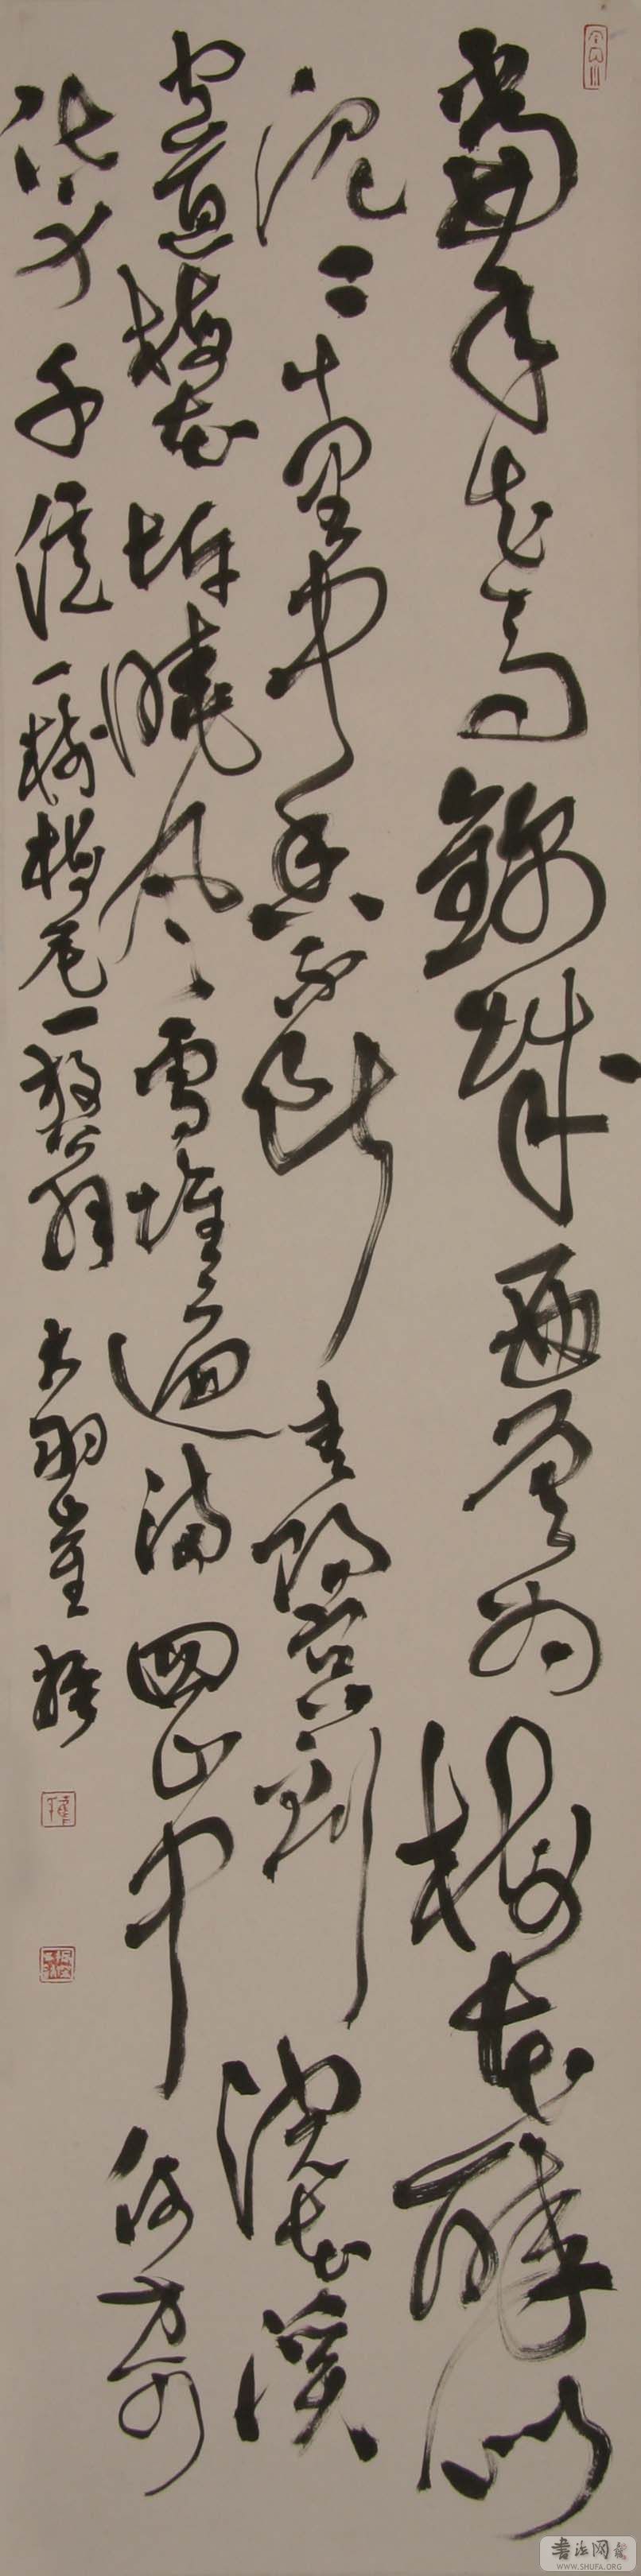 当年走马锦城西曾为梅花醉似
泥二十里中香不断青阳宫到浣花溪
闻道梅花坼晓风雪堆遍满四山中何方可
化身千亿一树梅花一放翁
书法网
WWW.SHUFA.ORG